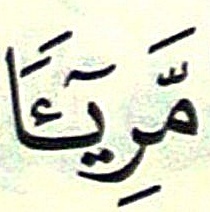 مَّرِيٓـًٔا